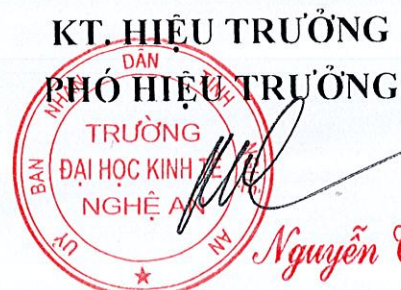 KT. HIỆU TRƯỞNG
PHÓ HIỆU TRƯỞNG
ỦY BAN NHÂN DÂN TỈNH NGHỆ AN
TRƯỜNG
ĐẠI HỌC KINH TẾ
NGHỆ AN
Nguyễn